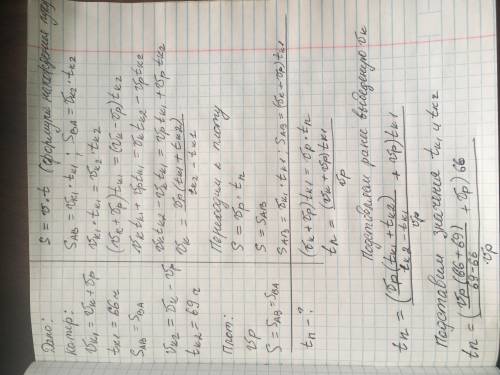 Дано:
Катер:
vк1 = vк + vр
tк1 = 66 ч
SAB = SBA
vк2 = vк - vр
tк2 = 69 ч
Плот:
vр
S = SAB = SBA
tп - ?
S = v · t (формула нахождения
SAB = vк1 · tк1 ; SBA = vк2 · tк2
vк1 · tк1 = vк2 · tк2
(vк + vр) tк1 = (vк - vр) tк2
vк tк1 + vр tк1 = vк tк2 - vр tк2
vк tк2 - vк tк1 = vр tк1 + vр tк2
vк = vр (tк1 + tк2) / tк2 - tк1
Переходим к плоту
S = vр · tп
S = SAB
SAB = vк1 · tк1, SAB = (vк + vр) tк1
(vк + vр) tк1 = vр · tп
tп = (vк + vр) tк1 / vр
Подставляем ранее выведеную vк
tп = (vр (tк1 + tк2) / tк2 - tк1 + vр) tк1 / vр
Подставим значения tк1 и tк2
tп = (vр (66 + 69) / 69 - 66 + vр) 66 / vр